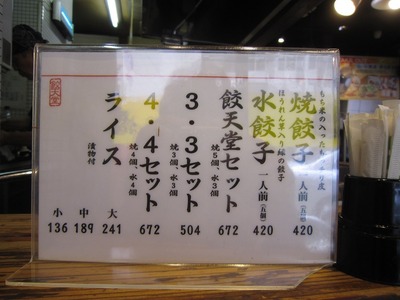 もち米の入ったもっちり皮
焼餃子 一人前(五個) 420
ほうれん草入り緑の餃子
水餃子 一人前(五個) 420
餃天堂セット 焼5個、水3個 672
3・3セット 焼3個、水3個 504
4・4セット 焼4個、水4個 672
ライス 漬物付
大 241
中 189
小 136
餃天堂